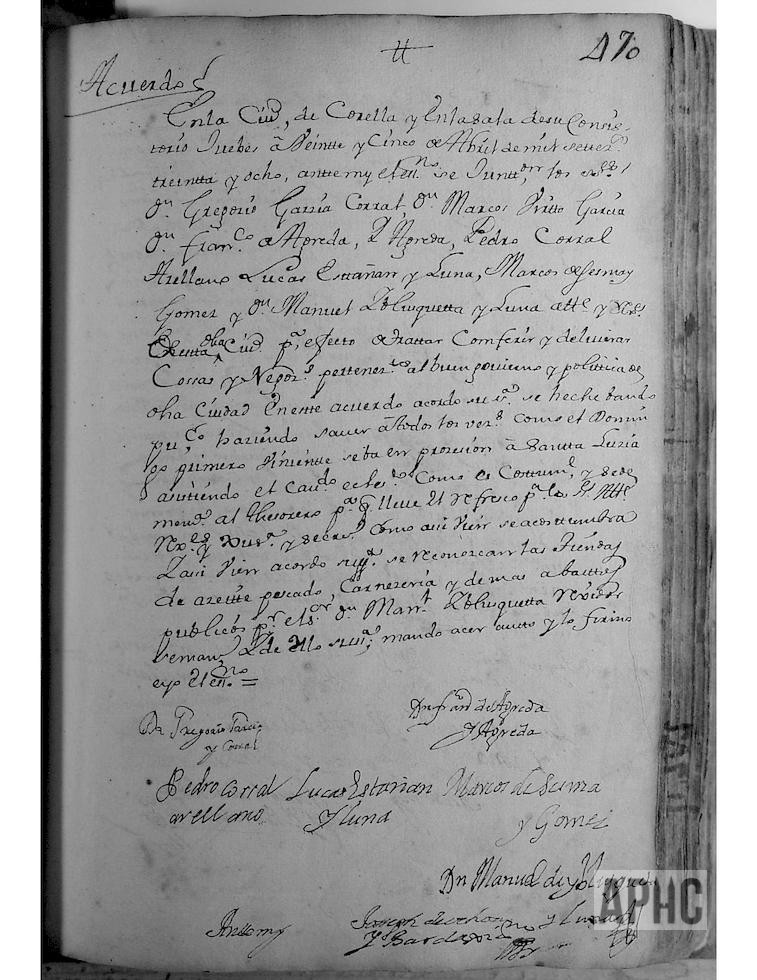 470
Acuerdo
En la Ciud, de Corella y En la Sala de su Consis-
torio Juebes â Veintte y Cinco de Abril de mil setez.s
treintta y ocho, antte my el ess.no se Juntt.on los ss.res
Dn Gregorio Garzia Corral, Dn Marcos Virtto Garcia
Dn Fran.co de Agreda, y Agreda, Pedro Corral
Arellano Lucas Esttañan y Luna, Marcos de Sesma y
Gomez y Dn Manuel de Yblusquetta y Luna Alt.e y
dha Ciud p.a efecto de trattar Comferir y deliverar
Cossas y Negoz.s pertenez.tes al buen govierno y politticia de
dha Ciudad En estte acuerdo acordo su s.a se heche bando
pu.co haziendo saver â todos los vez.s como el Domin
go primero Viniente se ba en prozesion â Santta Luzia
asistiendo el Cav.do ecles.co Como es Costum.e y se de
memo.a al thesorero p.a q lleve el refresco p.a los ss. Alt.e
y secret.o Como assi Vien se acosttumbra
Y assi Vien acordo su s.a se reconozcan las tiendas
de azeitte pescado, Carnezeria y demas abasttos
publicos p.r el s.or Dn Man.l de Yblusquetta Rexidor
y de ello su s.a mando acer autto y lo firmo
e yo el ess.no =
Dn Gregorio Garcia
y Corral
Dn fran.co de Agreda
y Agreda
Pedro Corral
arellano
Lucas Estañan
y Luna
Marcos de Sesma
y Gomez
Dn Manuel de Yblusqueta
y Luna
Antte my
Joseph
APHC